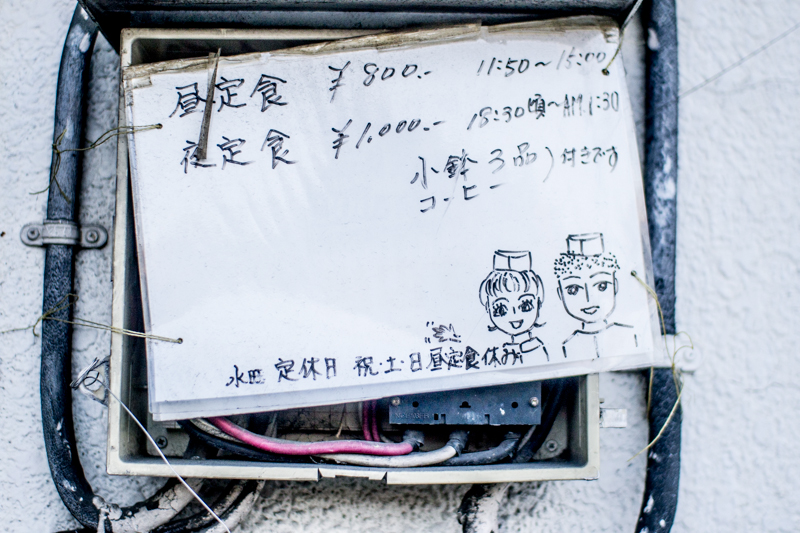 昼定食 ¥800.- 11:50~15:00
夜定食 ¥1,000.- 18:30頃~AM.1:30
小鉢 3品 ) 付きです
コーヒー
定休日 祝・土・日昼定食休み